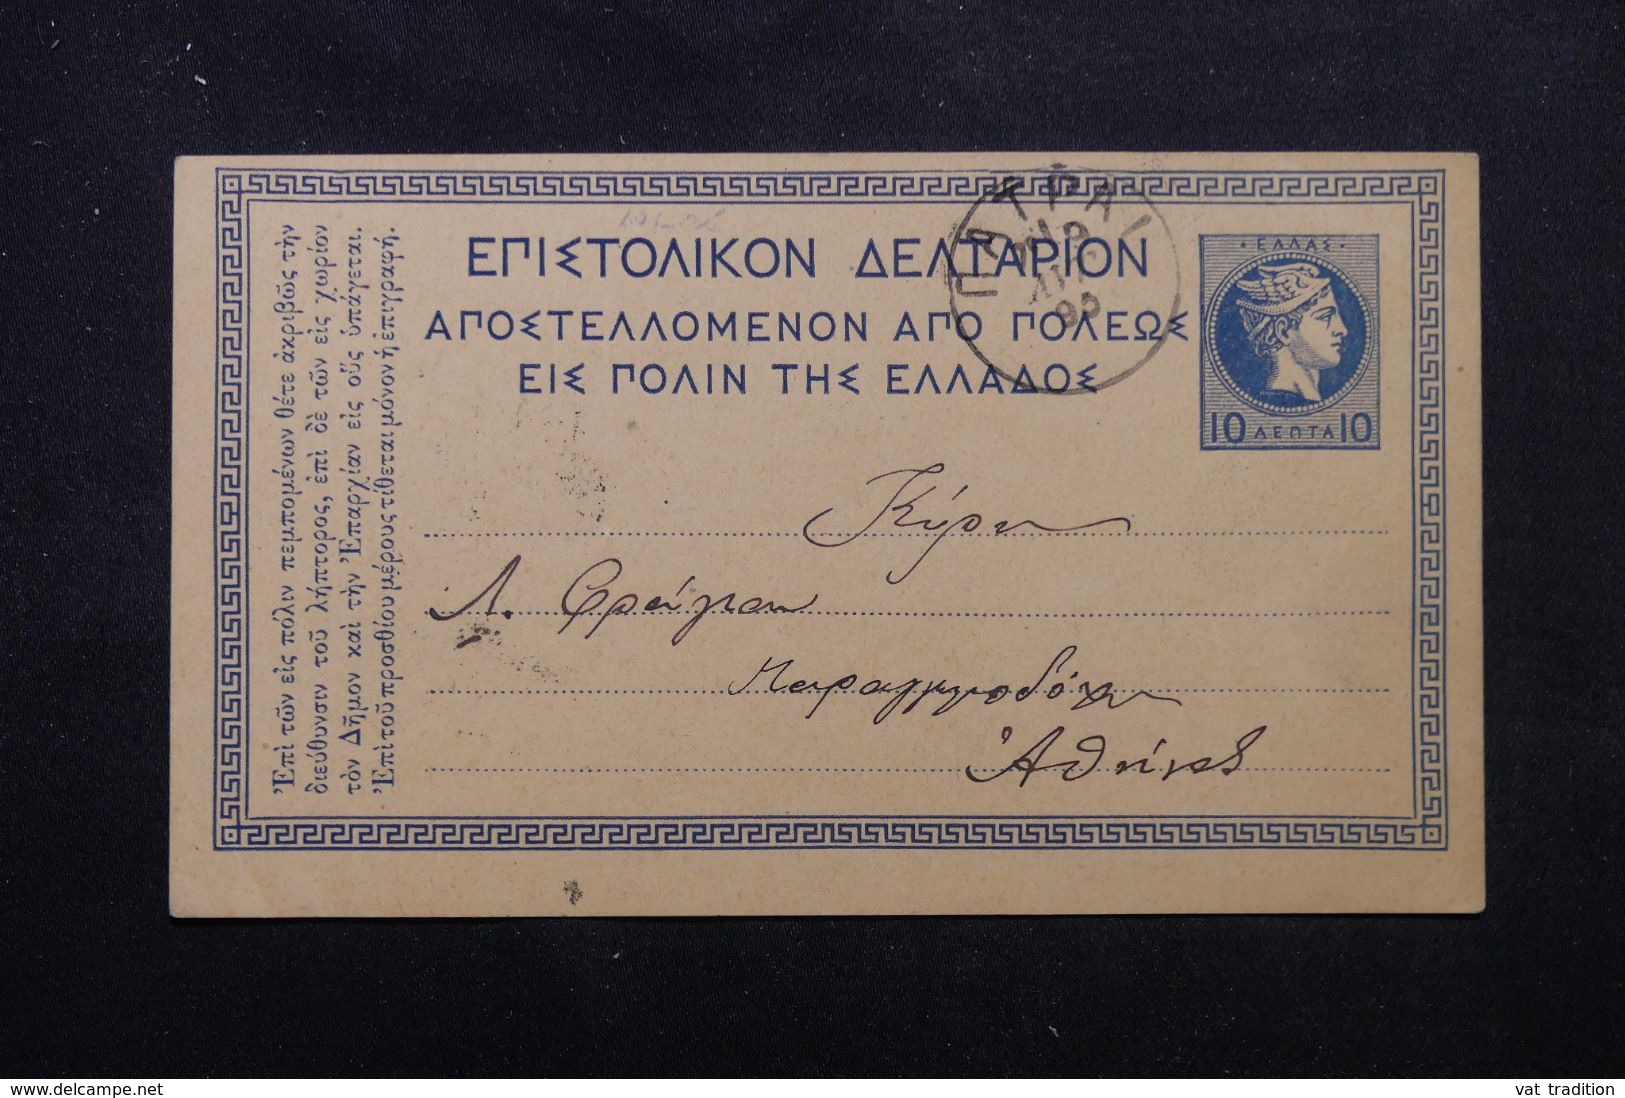 Ἐπὶ τῶν εἰς πόλιν πεμπομένων θέτε ἀκριβῶς τὴν
διεύθυνσιν τοῦ λήπτορος, ἐπὶ δὲ τῶν εἰς χωρίον
τὸν Δῆμον καὶ τὴν Ἐπαρχίαν εἰς οὓς ὑπάγεται.
Ἐπὶ τοῦ προσθίου μέρους τίθεται μόνον ἡ ἐπιγραφή.
ΕΠΙΣΤΟΛΙΚΟΝ ΔΕΛΤΑΡΙΟΝ
ΑΠΟΣΤΕΛΛΟΜΕΝΟΝ ΑΠΟ ΠΟΛΕΩΣ
ΕΙΣ ΠΟΛΙΝ ΤΗΣ ΕΛΛΑΔΟΣ
ΠΑΤΡΑΙ
ΑΥΓ
95
ΕΛΛΑΣ
10 ΛΕΠΤΑ 10
Κύριον
Λ.
Ἀθήνας
delcampe.net
vat tradition